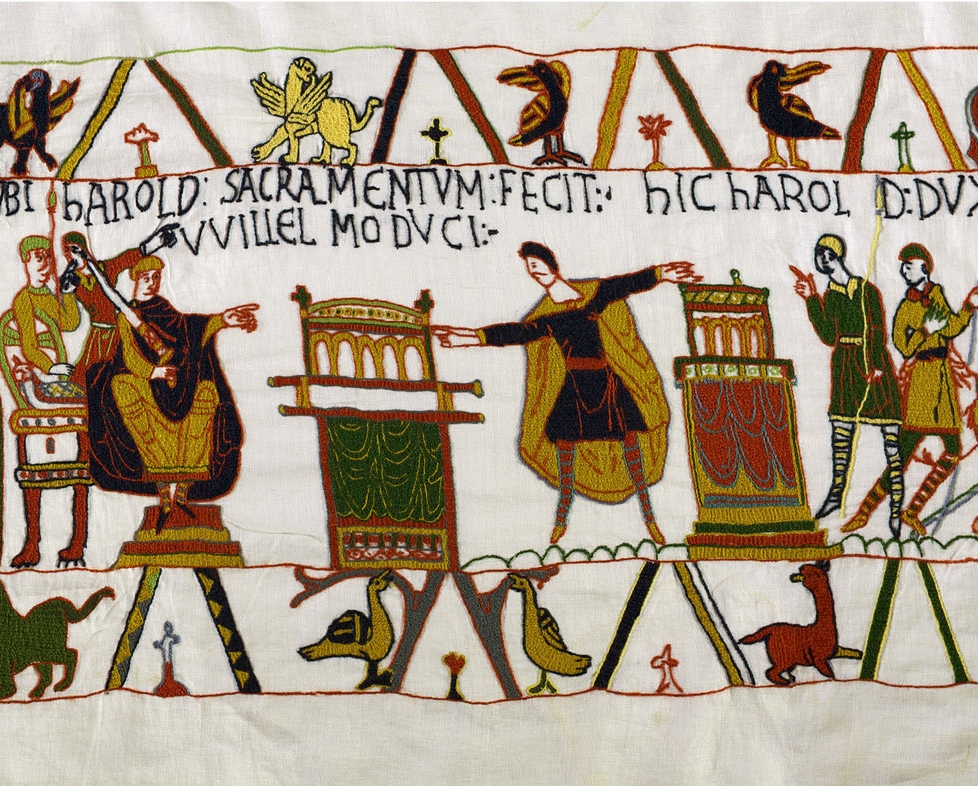 UBI hAROLD: SACRAMENTVM: FECIT:· hIC hAROL D: DVX
VVILLEL MO DVCI:-